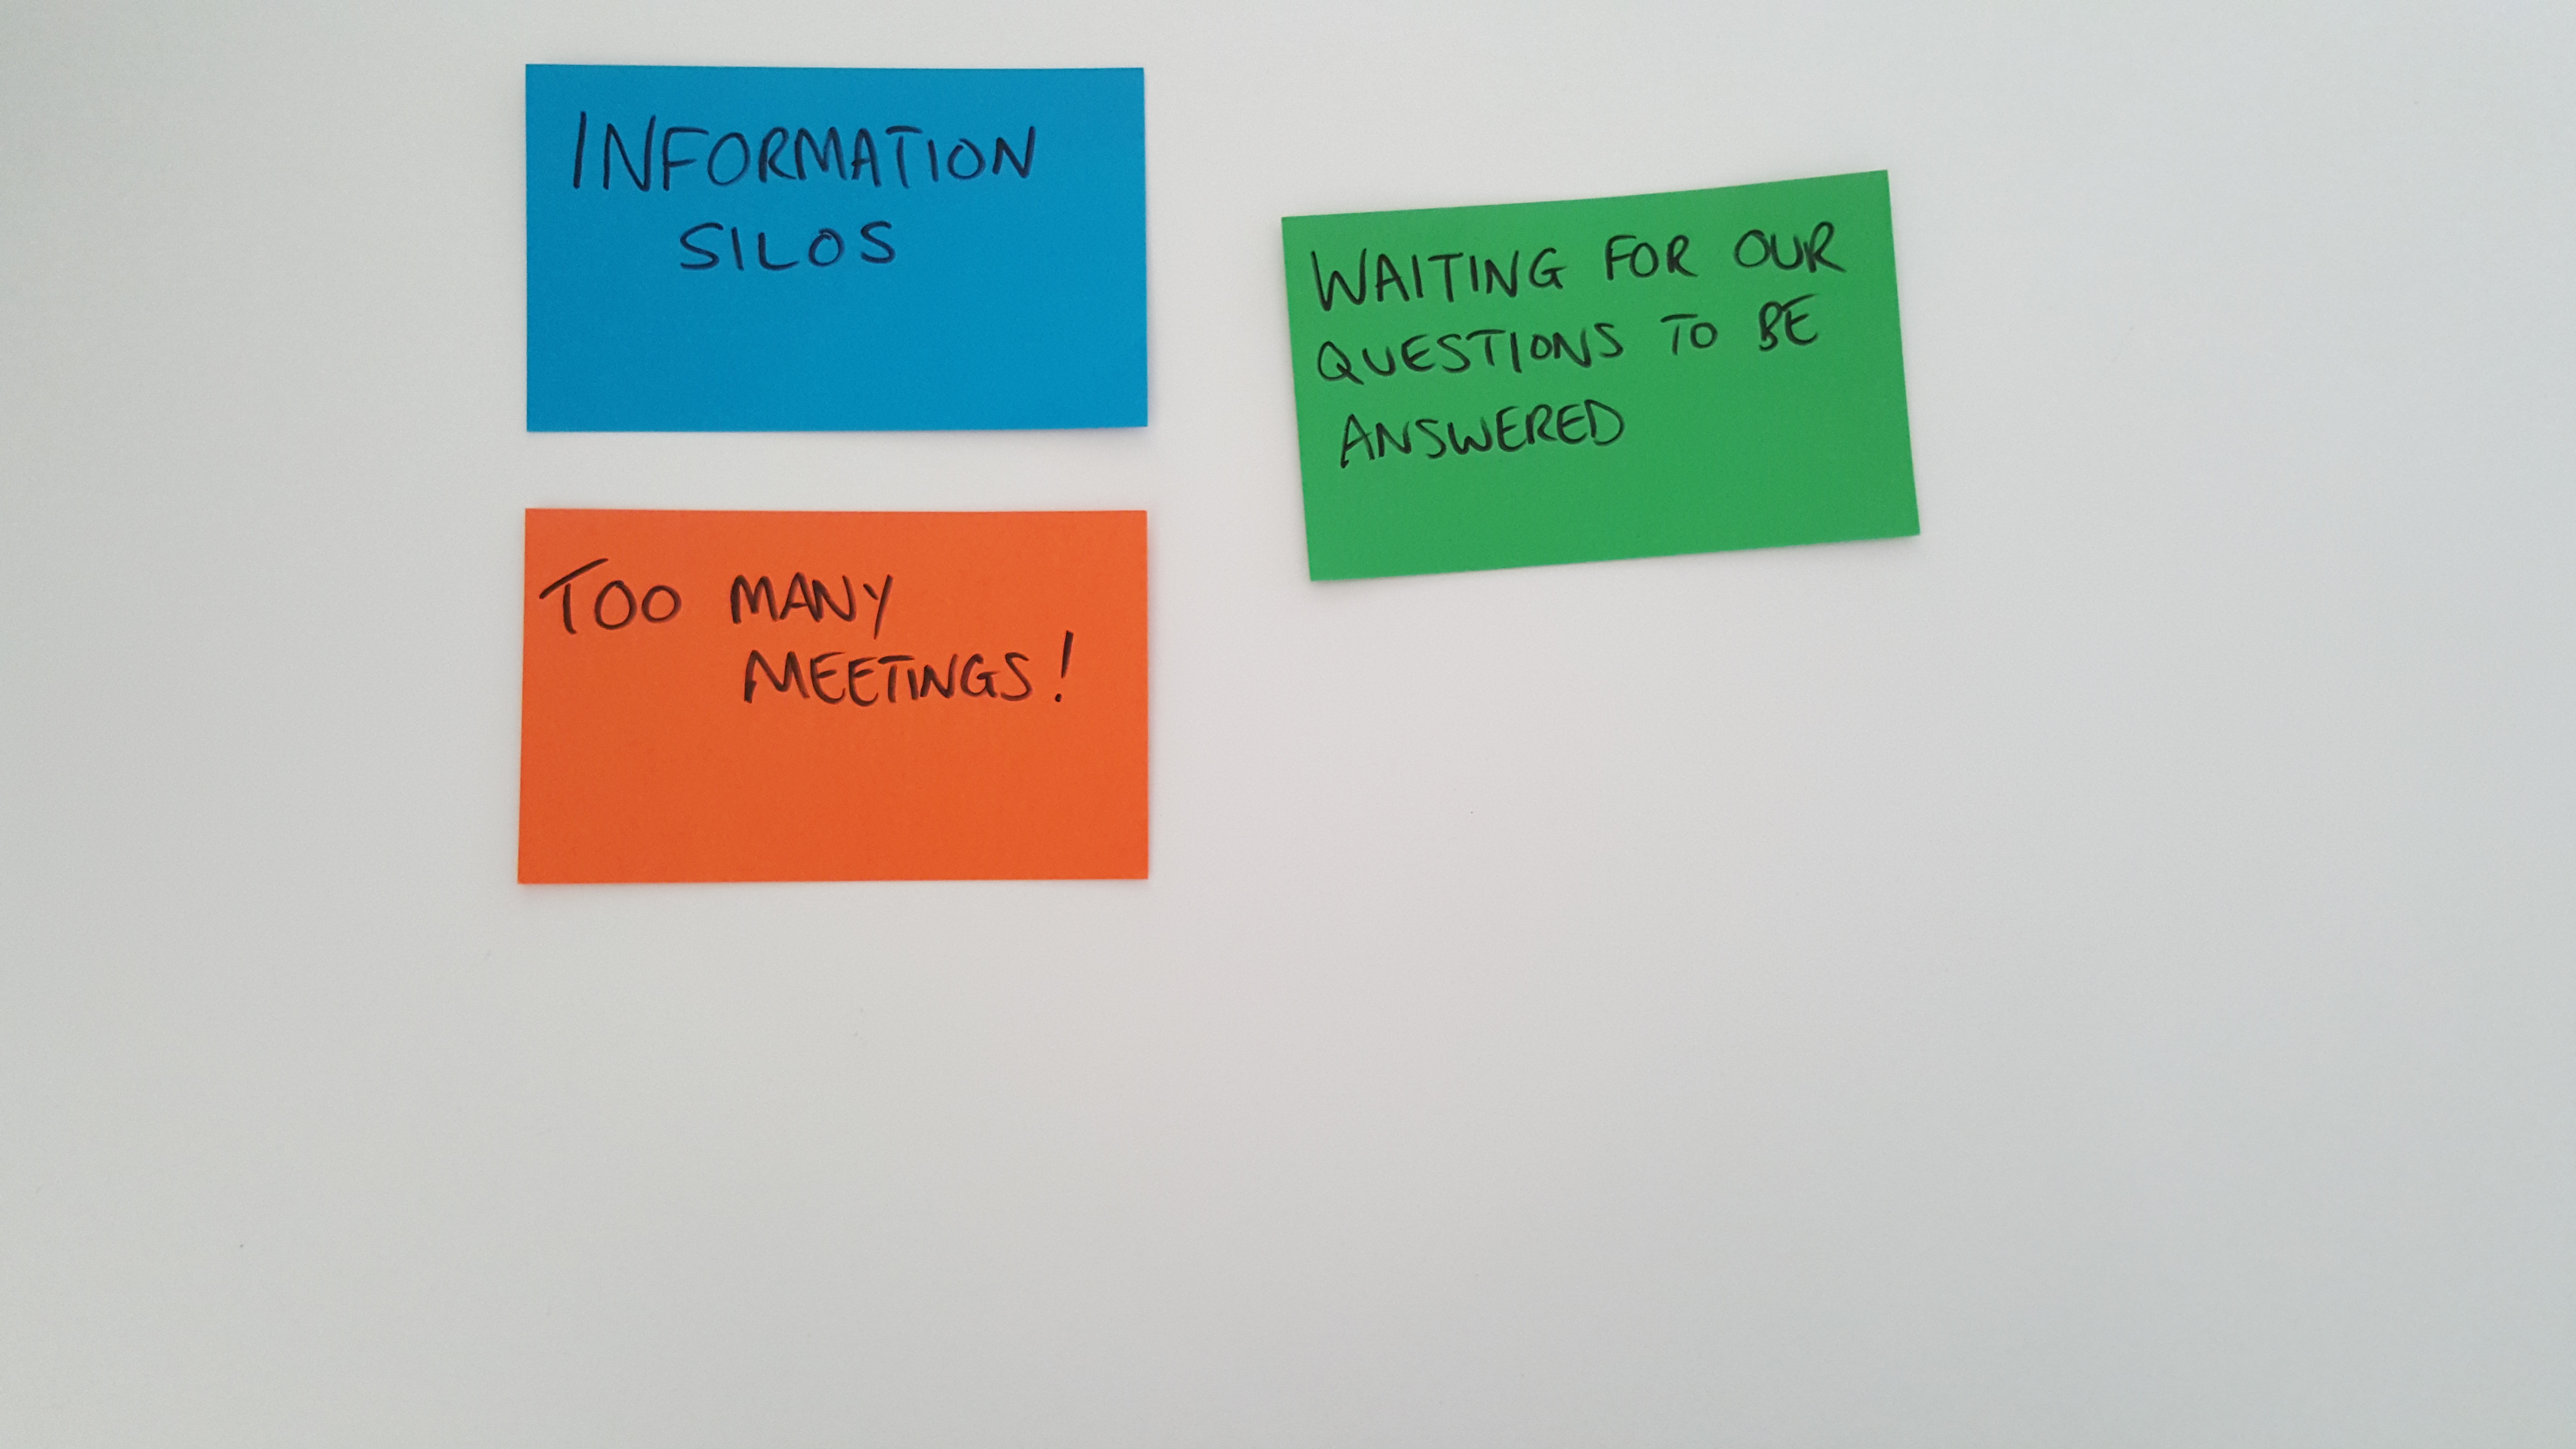 INFORMATION
SILOS
WAITING FOR OUR
QUESTIONS TO BE
ANSWERED
TOO MANY
MEETINGS!